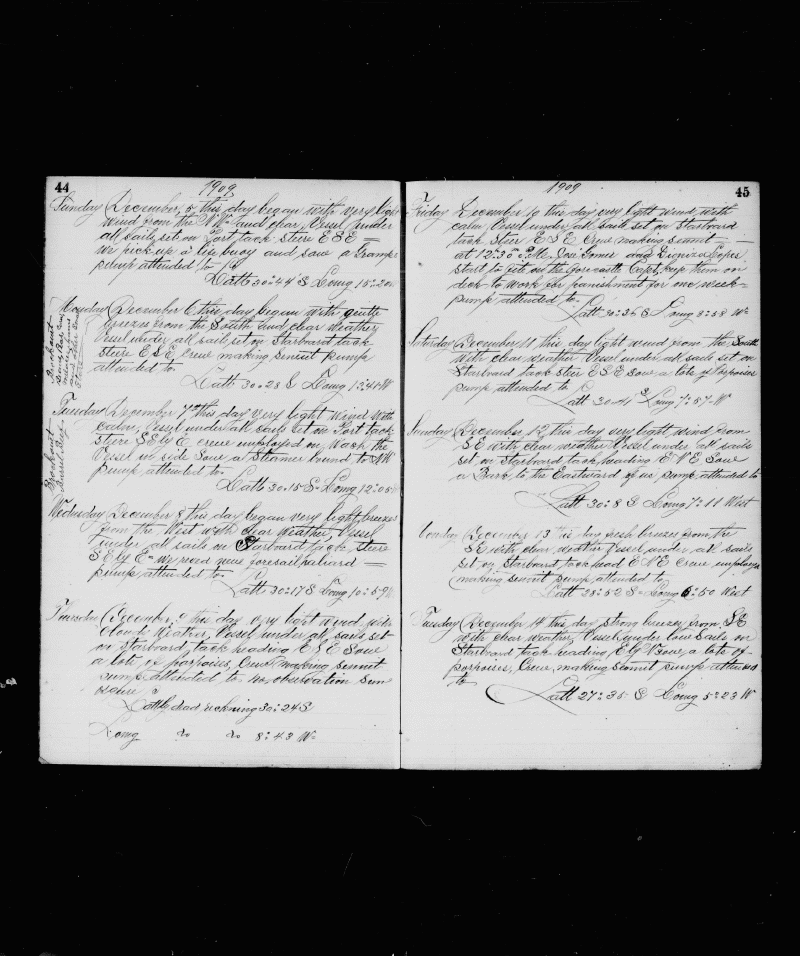 44
1909
Sunday December, 5 this day began with very light
wind from the NW and clear, Vessel under
all sails set on Port tack stere ESE =
we pick up a life buoy and saw a Gramps
pump attended to
Latt 30:44 S Long 15:20
Monday December 6 this day began with gentle
breezes from the South and clear weather
Vessel under all sails set on Starboard tack
Stere ESE, Crew making sennit pump
attended to
Latt 30:28 S Long 13:41 W
Tuesday December 7th this day very light wind with
calm, Vessel under all sails set on Port tack
stere SE by E crew employed on wash the
Vessel in side Saw at Steamer bound to NW
pump attended to
Latt 30:15 S Long 12:05
Broke out
Barrel Beef
Wednesday December 8 this day began very light breezes
from the West with clear weather, Vessel
under all sails on Starboard tack, stere
SE by E we roved new foresail haliard =
pump attended to
Latt 30:17 S Long 10:59 W
Thursday December, 9 this day very light wind with
cloudy weather, Vessel under all sails set
on Starboard, tack heading ESE Saw
a lots of porpoises, Crew making sennit
pump attended to no observation sun
Latt by dead reckning 30:24 S
Long do do 8:43 W
45
1909
Friday December 10 this day very light wind, with
calm, Vessel under all sails set on Starboard
tack Stere ESE Crew making sennit =
at 12:30 P.M. Jose Gomes and Lopes
start to fite on the forecastle Capt, keep them on
deck to work for punishment for one week
pump attended to
Latt 30:36 S Long 8:58 W
Saturday December 11 this day light wind from the South
with clear weather, Vessel under all sails set on
Starboard tack stere ESE saw a lots of Porpoises
pump attended to
Latt 30:41 S Long 7:57 W
Sunday December 12 this day very light, wind from
SE with clear weather Vessel under all sails
set on Starboard tack heading ENE Saw
a Bark to the Eastward of us, pump attended to
Latt 30:8 S Long 7:11 West
Monday December 13 this day fresh breezes from the
SE with clear weather Vessel under all sails
set on Starboard, tack head ENE Crew employed
making sennit pump attended to
Latt 28:52 S Long 6:50 West
Tuesday December 14 this day strong breezes from, SE
with clear weather, Vessel, under low sails on
Starboard tack heading E by N Saw, a lots of
porpoises, Crew, making sennit pump attended
to
Latt 27:35 S Long 5:23 W